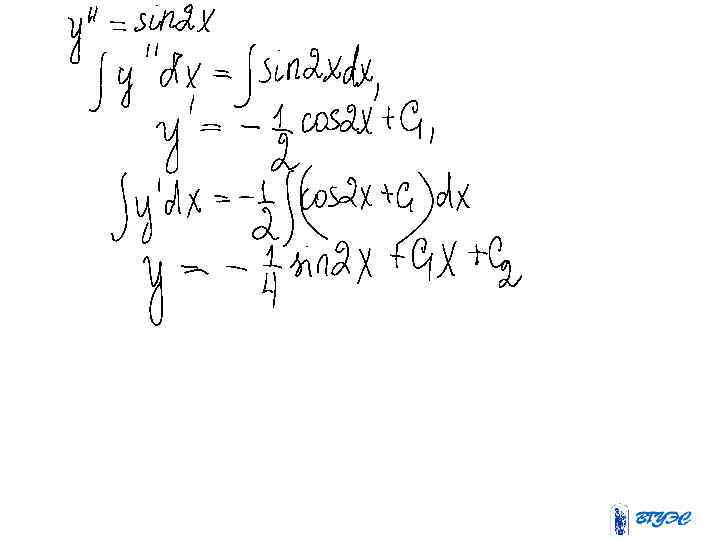 y'' = sin2x
∫y''dx = ∫sin2xdx,
y' = -1/2 cos2x + C₁,
∫y'dx = -1/2 ∫(cos2x + C₁)dx
y = -1/4 sin2x + C₁x + C₂
ВГУЭС